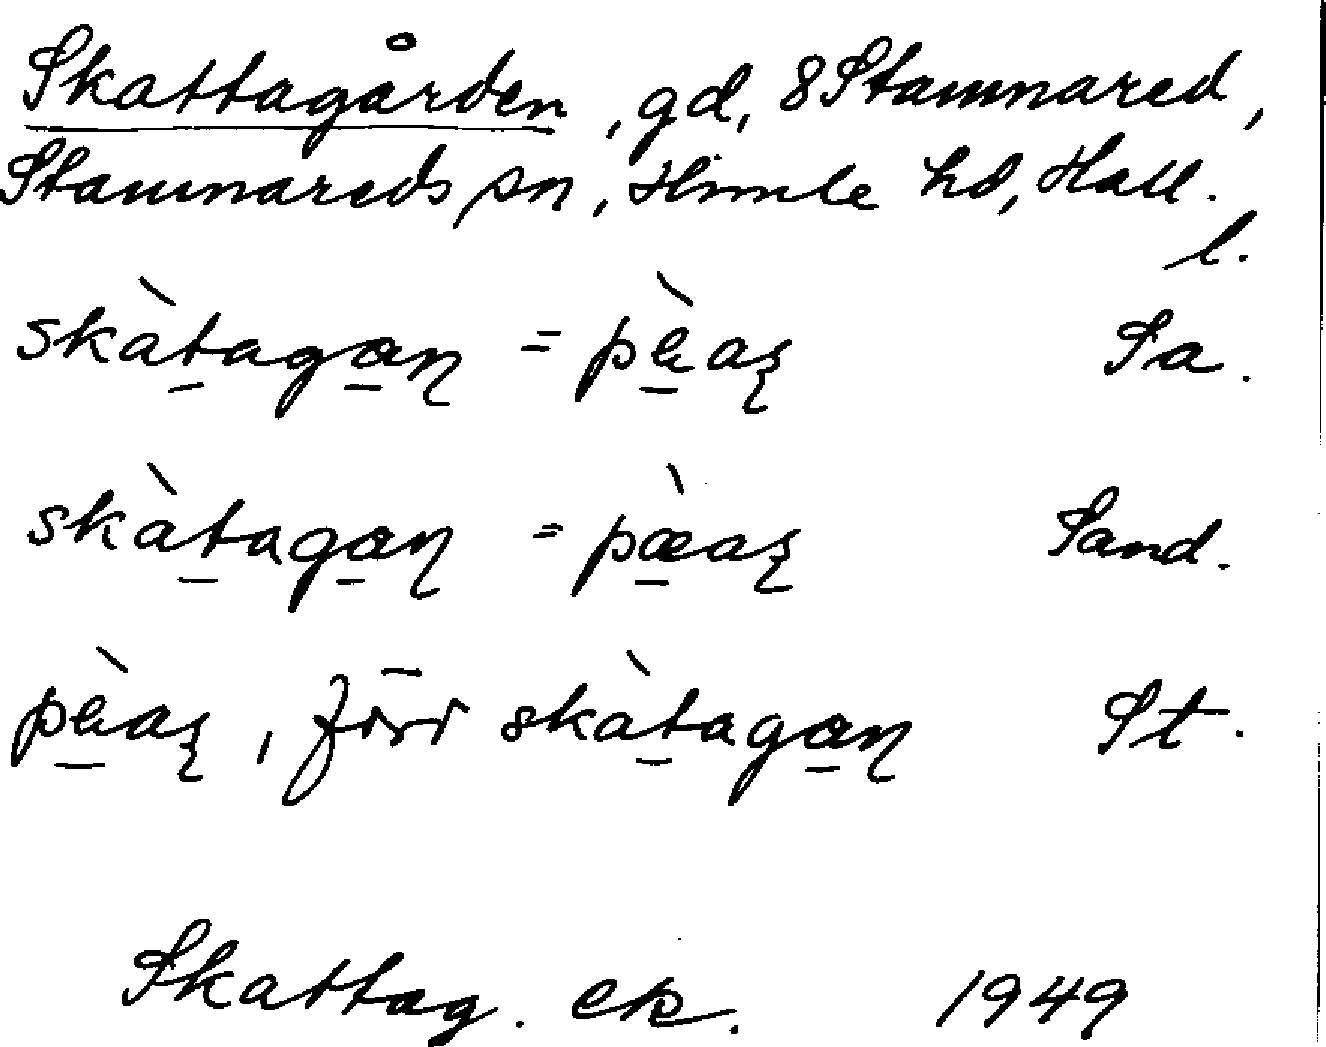 Skattagården, gd, 8 Stamnared,
Stamnareds sn, Himle hd, Hall.
l.
skàtagan = pèaş Sa.
skàtagan = pæ̀aş Sand.
pèaş, förr skàtagan St.
Skattag. ek. 1949